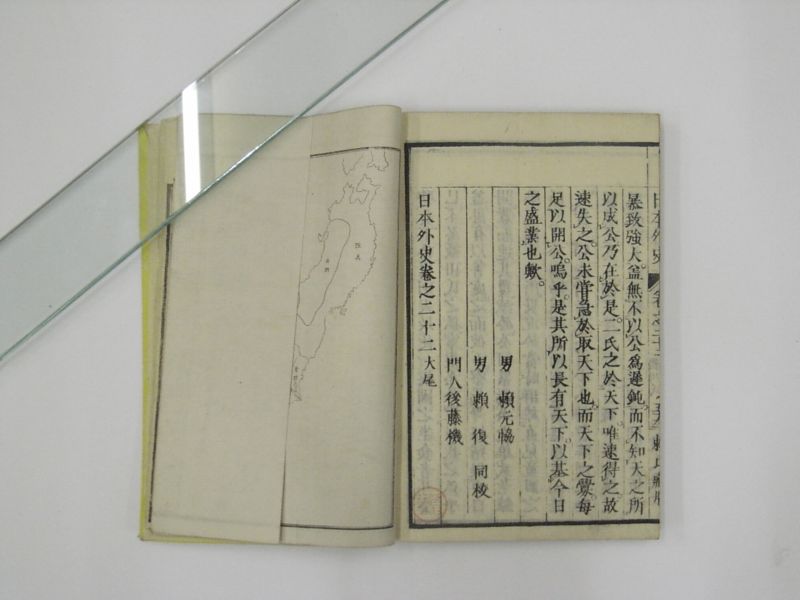 日本外史
暴致強大益無不以公為遲鈍而不知天之所
以成公乃在於是二氏之於天下唯速得之故
速失之公未嘗急於取天下也而天下之釁毎
足以開公嗚呼是其所以長有天下以基今日
之盛業也歟。
男 頼元協
男 頼復 同校
門人後藤機
日本外史卷之二十二大尾